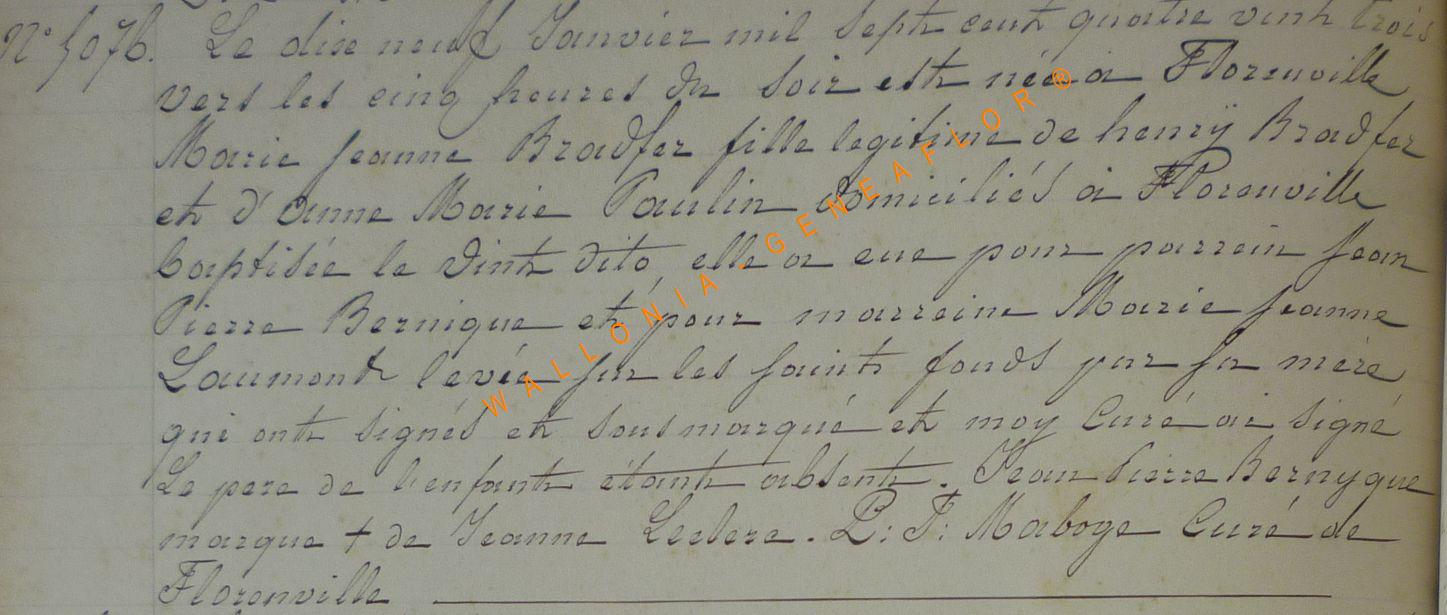 N° 5076. Le dixe neuf Janvier mil sept cent quatre vint trois
vers les cinq heures du soir est née a Florenville
Marie Jeanne Bradfer fille legitime de henrÿ Bradfer
et d'anne Marie Paulin domiciliés a Florenville
baptisée le vint dito, elle a eue pour parrein Jean
Pierre Bernique et pour marreine Marie Jeanne
Laumont levée sur les saints fonds par sa mère
qui ont signés et sousmarqué et moy Curé ai signé
Le pere de l'enfant étant absent. Jean Pierre Bernyque
marque + de Jeanne Leclere. P: J: Maboge Curé de
Florenville
WALLONIA - GENEAFLOR®